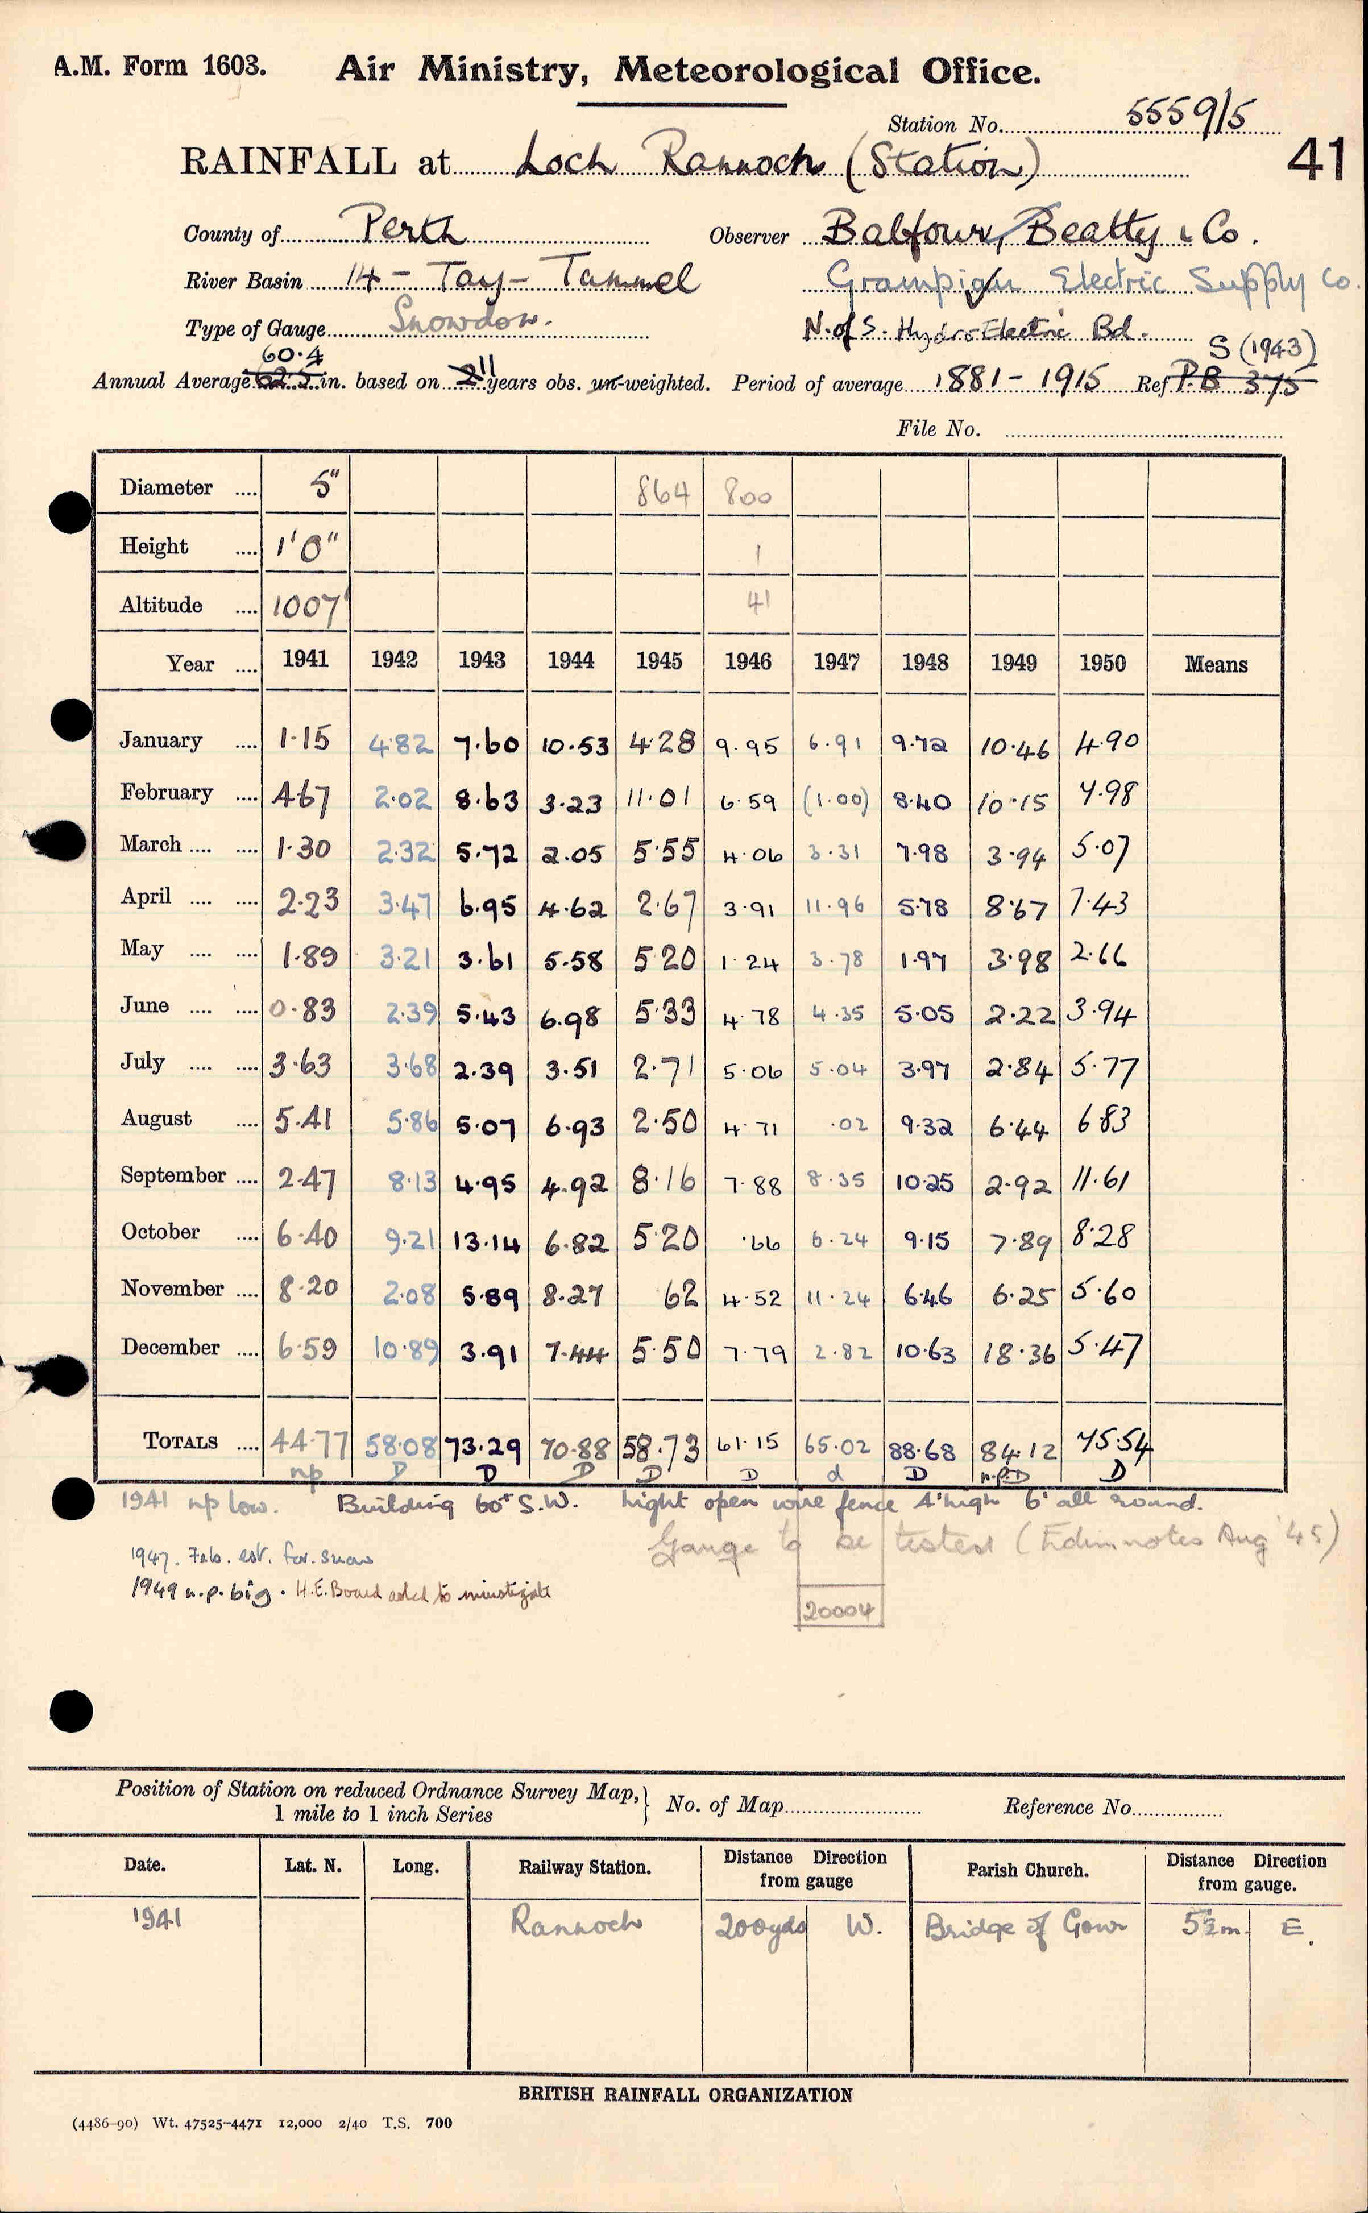 A.M. Form 1603. Air Ministry, Meteorological Office.
Station No. 5559/5
41
RAINFALL at Loch Rannoch (Station)
County of Perth Observer Balfour, Beatty & Co.
River Basin 14 - Tay - Tummel Grampian Electric Supply Co.
Type of Gauge Snowdon. N. of S. Hydro-Electric Bd.
60.4 S (1943)
Annual Average 62.5 in. based on 11 years obs. un-weighted. Period of average 1881 - 1915 Ref P.B 375
File No.
Diameter .... 5" 864 800
Height .... 1'0" 1
Altitude .... 1007' 41
Year .... 1941 1942 1943 1944 1945 1946 1947 1948 1949 1950 Means
January .... 1.15 4.82 7.60 10.53 4.28 9.95 6.91 9.72 10.46 4.90
February .... 4.67 2.02 8.63 3.23 11.01 6.59 (1.00) 8.40 10.15 7.98
March .... .... 1.30 2.32 5.72 2.05 5.55 4.06 3.31 7.98 3.94 5.07
April .... .... 2.23 3.47 6.95 4.62 2.67 3.91 11.96 5.78 8.67 7.43
May .... .... 1.89 3.21 3.61 5.58 5.20 1.24 3.78 1.97 3.98 2.66
June .... .... 0.83 2.39 5.43 6.98 5.33 4.78 4.35 5.05 2.22 3.94
July .... .... 3.63 3.68 2.39 3.51 2.71 5.06 5.04 3.97 2.84 5.77
August .... 5.41 5.86 5.07 6.93 2.50 4.71 .02 9.32 6.44 6.83
September .... 2.47 8.13 4.95 4.92 8.16 7.88 8.35 10.25 2.92 11.61
October .... 6.40 9.21 13.14 6.82 5.20 .66 6.24 9.15 7.89 8.28
November .... 8.20 2.08 5.89 8.27 62 4.52 11.24 6.46 6.25 5.60
December .... 6.59 10.89 3.91 7.44 5.50 7.79 2.82 10.63 18.36 5.47
TOTALS .... 44.77 58.08 73.29 70.88 58.73 61.15 65.02 88.68 84.12 75.54
np D D D D D d D n.p D D
1941 np low. Building 60' S.W. Light open wire fence 4' high 6' all round.
Gauge to be tested (Edin notes Aug '45)
1947. Feb. est. for snow
1949 n.p. big. H.E. Board asked to investigate
20004
Position of Station on reduced Ordnance Survey Map,
1 mile to 1 inch Series } No. of Map Reference No.
Date. Lat. N. Long. Railway Station. Distance from gauge Direction Parish Church. Distance from gauge. Direction
1941 Rannoch 200yds W. Bridge of Gour 5½m. E.
BRITISH RAINFALL ORGANIZATION
(4486-90) Wt. 47525-4471 12,000 2/40 T.S. 700